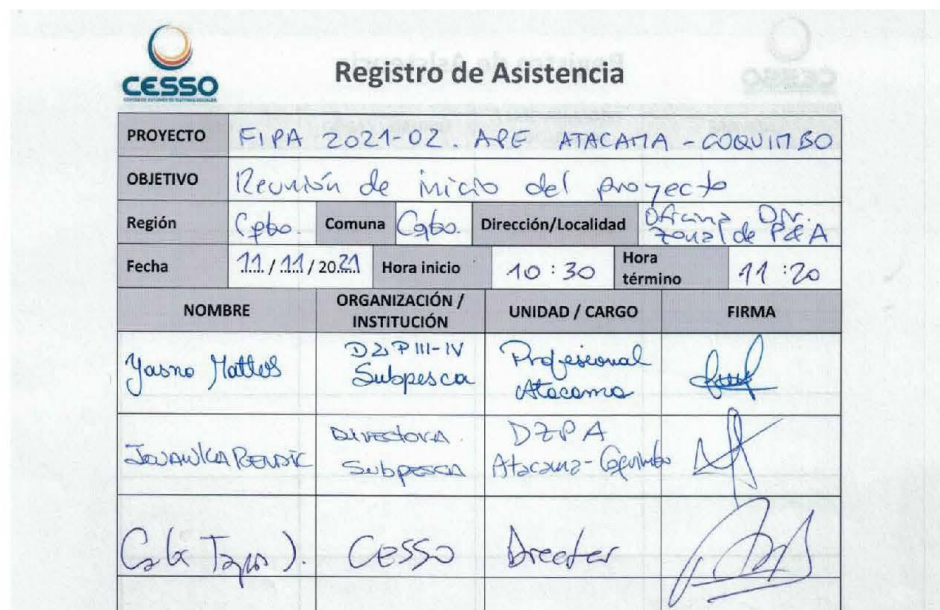 CESSO
Registro de Asistencia
PROYECTO FIPA 2021-02. APE ATACAMA - COQUIMBO
OBJETIVO Reunión de inicio del proyecto
Región Cqbo. Comuna Cqbo. Dirección/Localidad Oficina Dir. zonal de P&A
Fecha 11/11/2021 Hora inicio 10:30 Hora término 11:20
NOMBRE ORGANIZACIÓN / INSTITUCIÓN UNIDAD / CARGO FIRMA
Yasna Mattos DZP III-IV Subpesca Profesional Atacama
Directora Subpesca DZPA Atacama-Coquimbo
Tapia J. CESSO Director